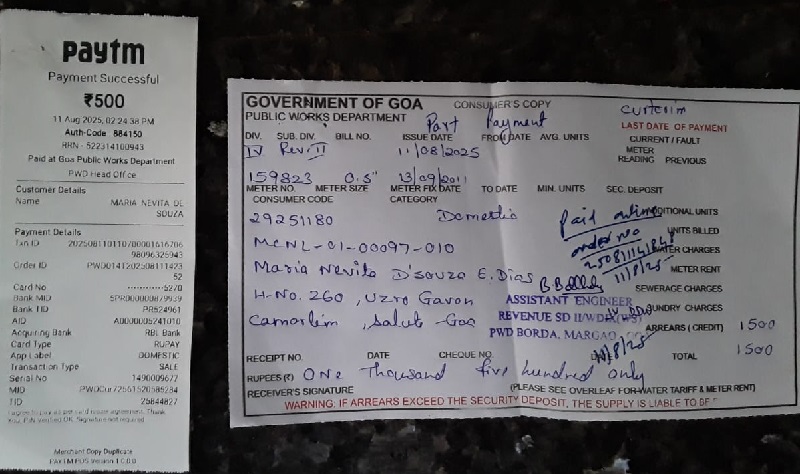 paytm
Payment Successful
₹500
11 Aug 2025, 02:24:38 PM
Auth-Code 884150
RRN : 522314100943
Paid at Goa Public Works Department
PWD Head Office
Customer Details
Name MARIA NEVITA DE
SOUZA
Payment Details
Order ID PWD0141202508111423
52
Card No 5270
Bank MID
Bank TID PR524961
AID A0000005241010
Acquiring Bank RBL Bank
Card Type RUPAY
App Label DOMESTIC
Transaction Type SALE
Serial No 1490009672
MID
TID 25844827
Merchant Copy Duplicate
GOVERNMENT OF GOA CONSUMER'S COPY Curtorim
PUBLIC WORKS DEPARTMENT Part Payment LAST DATE OF PAYMENT
DIV. SUB. DIV. BILL NO. ISSUE DATE FROM DATE AVG. UNITS CURRENT / FAULT
IV Rev II 11/08/2025 METER
READING PREVIOUS
159823 0.5" 13/09/2011
METER NO. METER SIZE METER FIX DATE TO DATE MIN. UNITS SEC. DEPOSIT
CONSUMER CODE CATEGORY
29251180 Domestic Paid online ADDITIONAL UNITS
order no UNITS BILLED
MCNL-01-00097-010 WATER CHARGES
11/8/25 METER RENT
Maria Nevita D'souza E. Dias SEWERAGE CHARGES
H-No. 260, Uzro Gavon ASSISTANT ENGINEER SUNDRY CHARGES
REVENUE SD II/WD IV (WS)
Camorlim, Salcete-Goa PWD BORDA, MARGAO, ARREARS (CREDIT) 1500
11/8/25
RECEIPT NO. DATE CHEQUE NO. TOTAL 1500
RUPEES (₹) One Thousand five hundred only
RECEIVER'S SIGNATURE (PLEASE SEE OVERLEAF FOR WATER TARIFF & METER RENT)
WARNING: IF ARREARS EXCEED THE SECURITY DEPOSIT, THE SUPPLY IS LIABLE TO BE